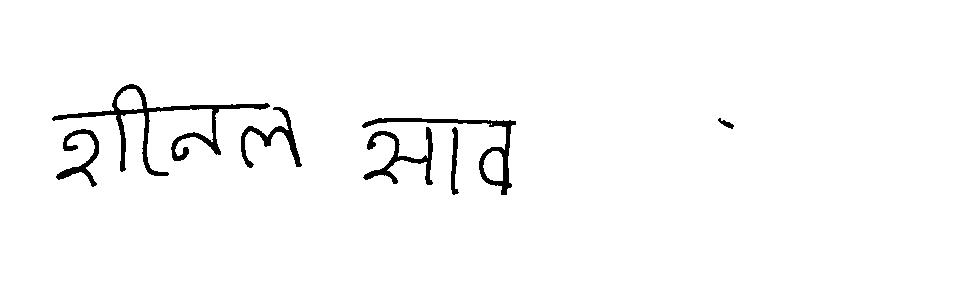 शीनल साव